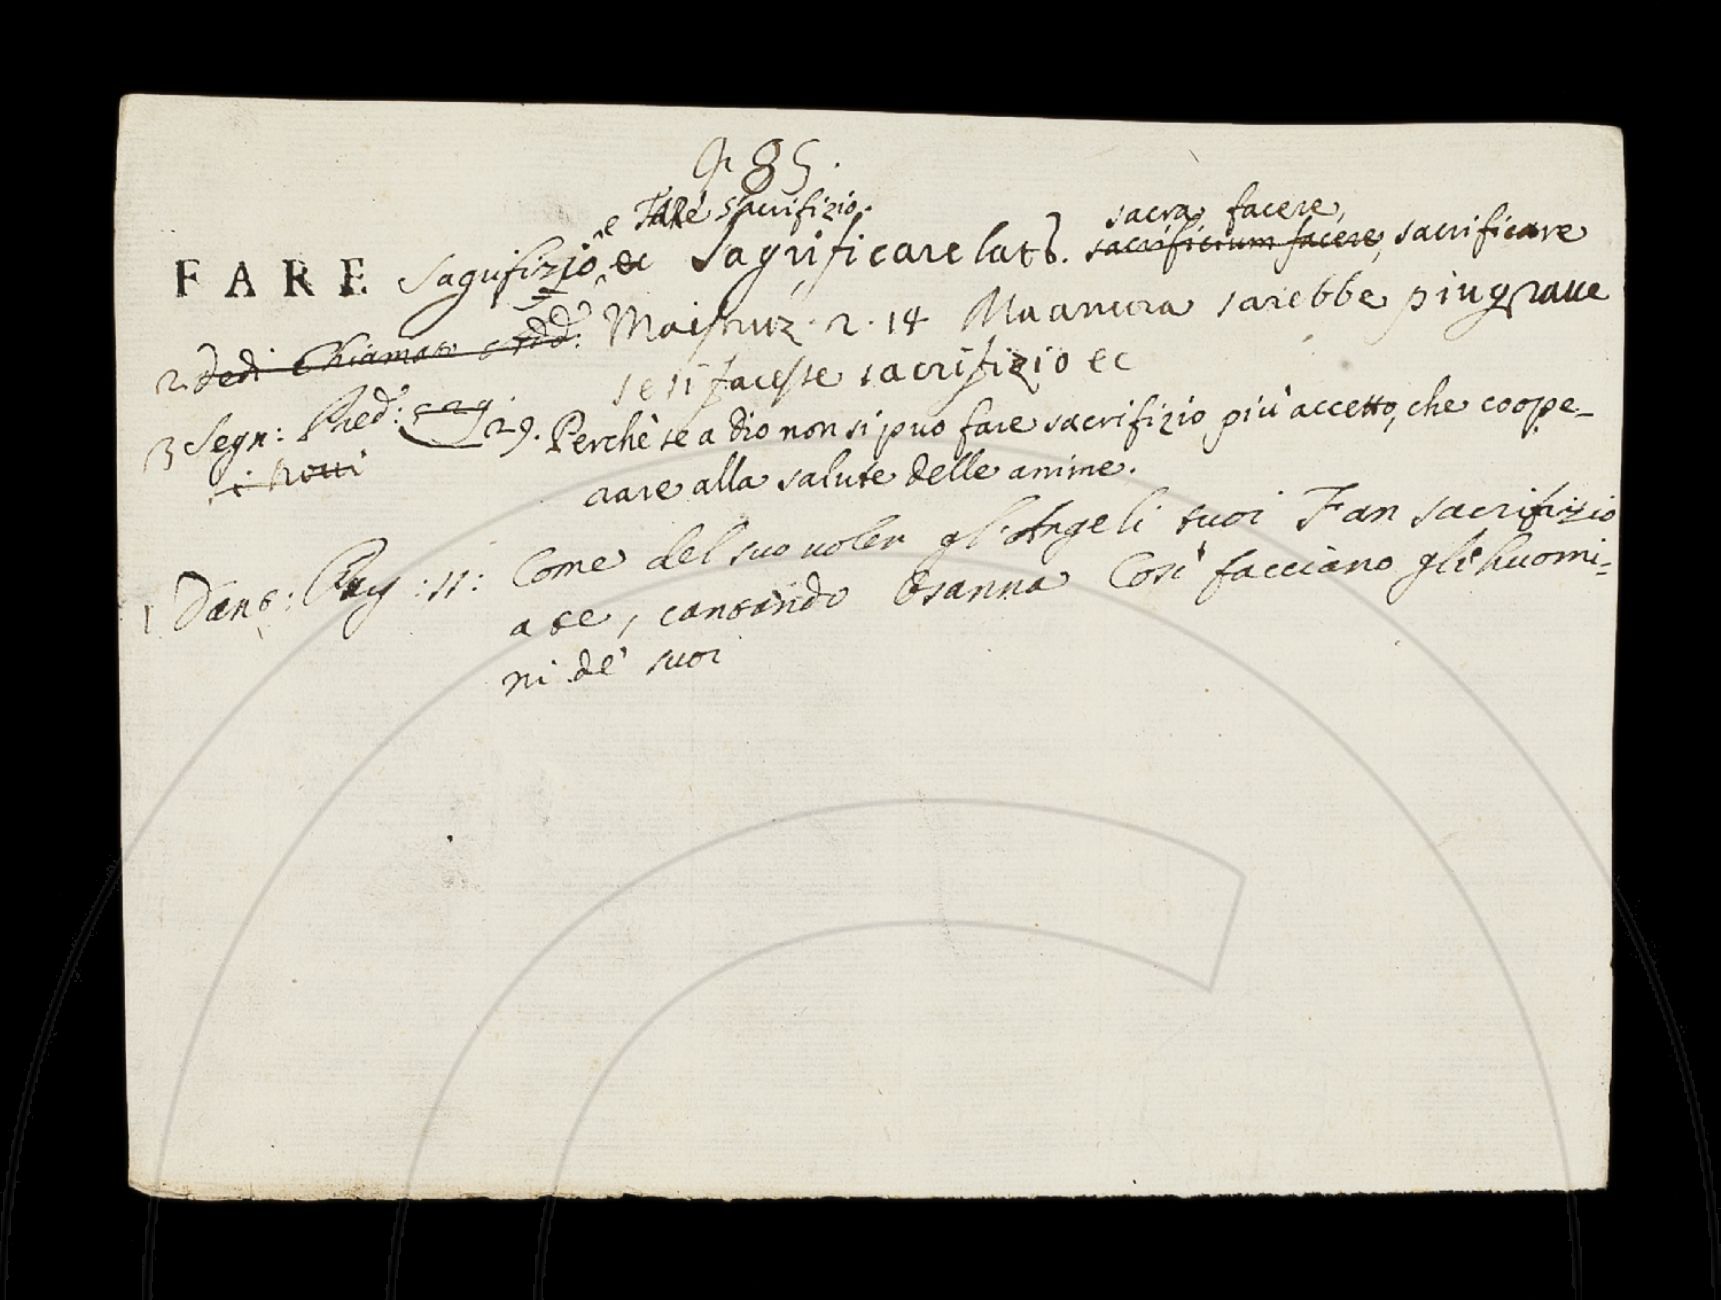 485.
e FARE sacrifizio.
sacra facere,
FARE Sagrifizio, ec Sagrificare lat. sacrificium facere, sacrificare
2 Dedi Chiamat Maestruz. 2. 14 Ma ancora sarebbe piu grave
se si facesse sacrifizio ec
3 Segn: Pred: 29. Perchè se a Dio non si puo fare sacrifizio più accetto, che coope-
rare alla salute delle anime.
1 Dant: Purg: 11: Come del suo voler gl'Angeli tuoi Fan sacrifizio
a te, cantando Osanna Così facciano gli huomi=
ni de' suoi